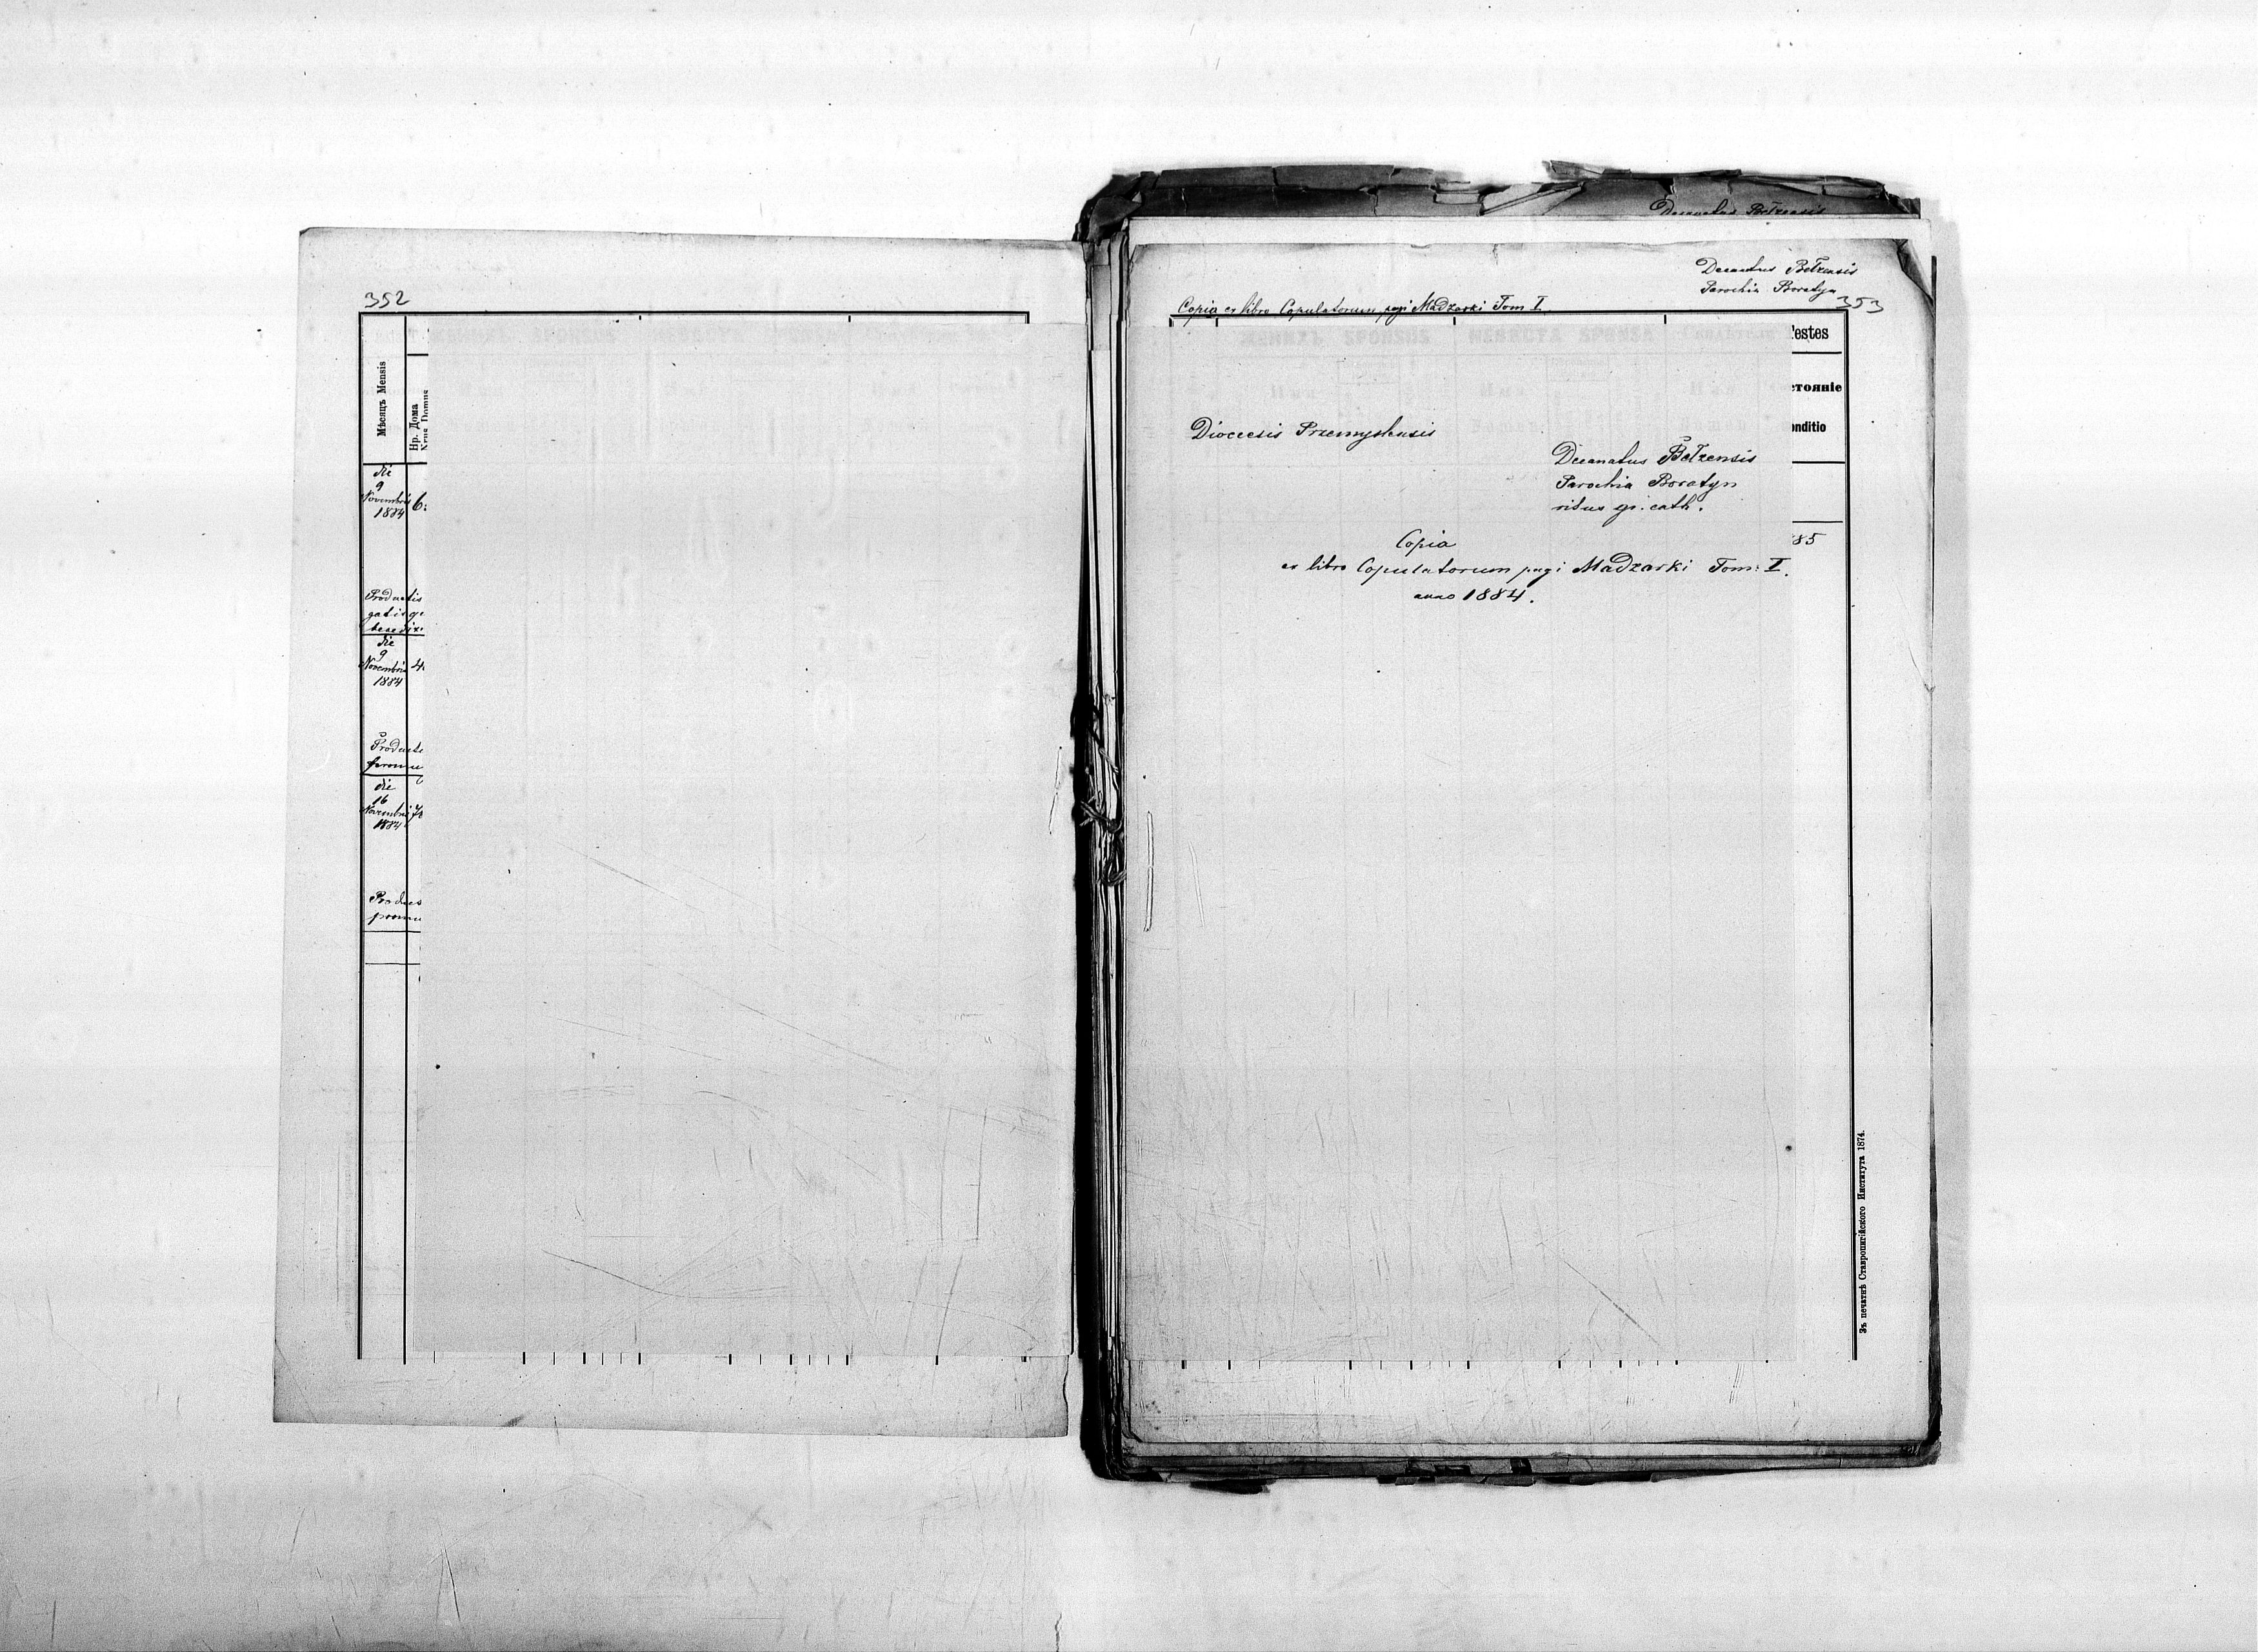 352
Мѣсяцъ Mensis
Нр. Дома
Nrus Domus
die
9
Novembris
1884
6
Productis
die
9
Novembris
1884
4
die
16
Novembris
1884
Decanatus Bełzensis
Decanatus Bełzensis
Parochia Boratyn
353
Copia ex libro Copulatorum pagi Madzarki Tom I.
ЖЕНИХЪ SPONSUS НЕВѢСТА SPONSA
Testes
стояніе
onditio
Dioecesis Przemyslensis
Decanatus Bełzensis
Parochia Boratyn
ritus gr. cath.
85
Copia
ex libro Copulatorum pagi Madzarki Tom: I.
anno 1884.
Зъ печатнѣ Ставропигійского Института 1874.